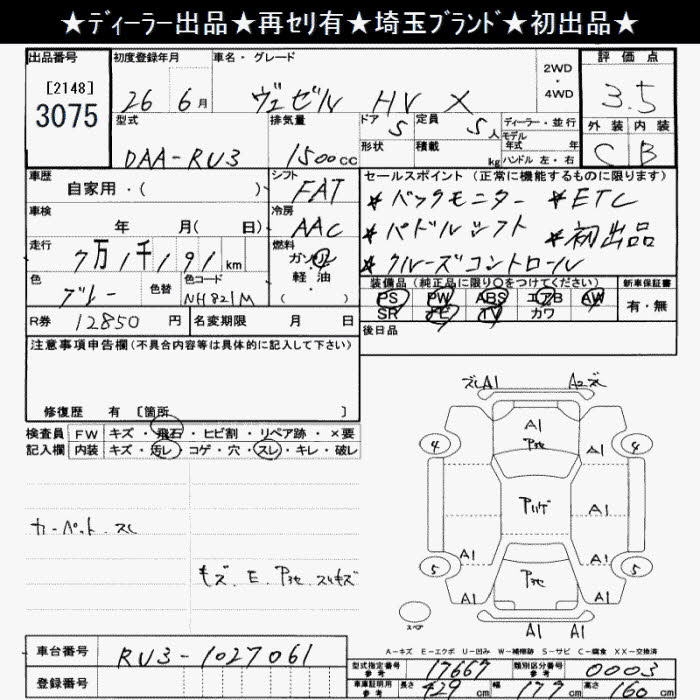 ★ディーラー出品★再セリ有★埼玉ブランド★初出品★
出品番号 初度登録年月 車名・グレード 2WD ・ 4WD 評価点
[2148]
3075
26年 6月 ヴェゼル HV X 3.5
型式 排気量 ドア 5 定員 5人 ディーラー・並行 外装 内装
モデル年式 年
DAA-RU3 1500cc 形状 積載 kg ハンドル 左・右 C B
車歴 シフト セールスポイント(正常に機能するものに限ります)
自家用・( ) FAT *バックモニター *ETC
車検 冷房 *パドルシフト *初出品
年 月( 日) AAC *クルーズコントロール
走行 燃料
7万1千191km ガソリン
軽・油
( )
色 色替 色コード 装備品(純正品に限り○をつけてください) 新車保証書
グレー NH821M PS PW ABS エアB AW 有・無
SR ナビ TV カワ
R券 12850円 名変期限 月 日 後日品
注意事項申告欄(不具合内容等は具体的に記入して下さい)
修復歴 有 [箇所 ]
検査員 FW キズ・飛石・ヒビ割・リペア跡・×要
記入欄 内装 キズ・汚レ・コゲ・穴・スレ・キレ・破レ
カーペット.スレ
キズ.E.
A1 A2
A1
4 4
A1
A1 A1
5 5
A1 A1
スペア
A1 A1
A-キズ E-エクボ U-凹み W-補修跡 S-サビ C-腐食 XX-交換済
車台番号 RU3-1027061
登録番号
型式指定番号 参考 17667 類別区分番号 参考 0003
車庫証明用 参考 長さ 429cm 幅 177cm 高さ 160cm